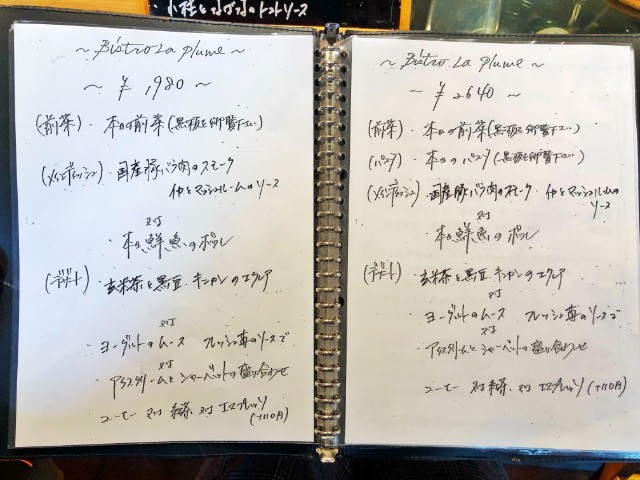 ・小柱と
トマトソース
～ Bistro La plume ～
～ ¥ 1,980 ～
(前菜)・本日の前菜(黒板を御覧下さい)
(メインディッシュ)・国産豚バラ肉のスモーク
マッシュルームのソース
又は
・本日鮮魚のポワレ
(デザート)・玄米茶と黒豆・キンカンのエクレア
又は
・ヨーグルトのムース フレッシュ苺のソースで
又は
・アイスクリームとシャーベットの盛り合わせ
コーヒー 又は 紅茶 又は エスプレッソ
(+110円)
～ Bistro La plume ～
～ ¥ 2,640 ～
(前菜)・本日の前菜(黒板を御覧下さい)
(パスタ)・本日のパスタ(黒板を御覧下さい)
(メインディッシュ)・国産豚バラ肉のスモーク マッシュルームの
ソース
又は
・本日鮮魚のポワレ
(デザート)・玄米茶と黒豆・キンカンのエクレア
又は
・ヨーグルトのムース フレッシュ苺のソースで
又は
・アイスクリームとシャーベットの盛り合わせ
コーヒー 又は 紅茶 又は エスプレッソ (+110円)